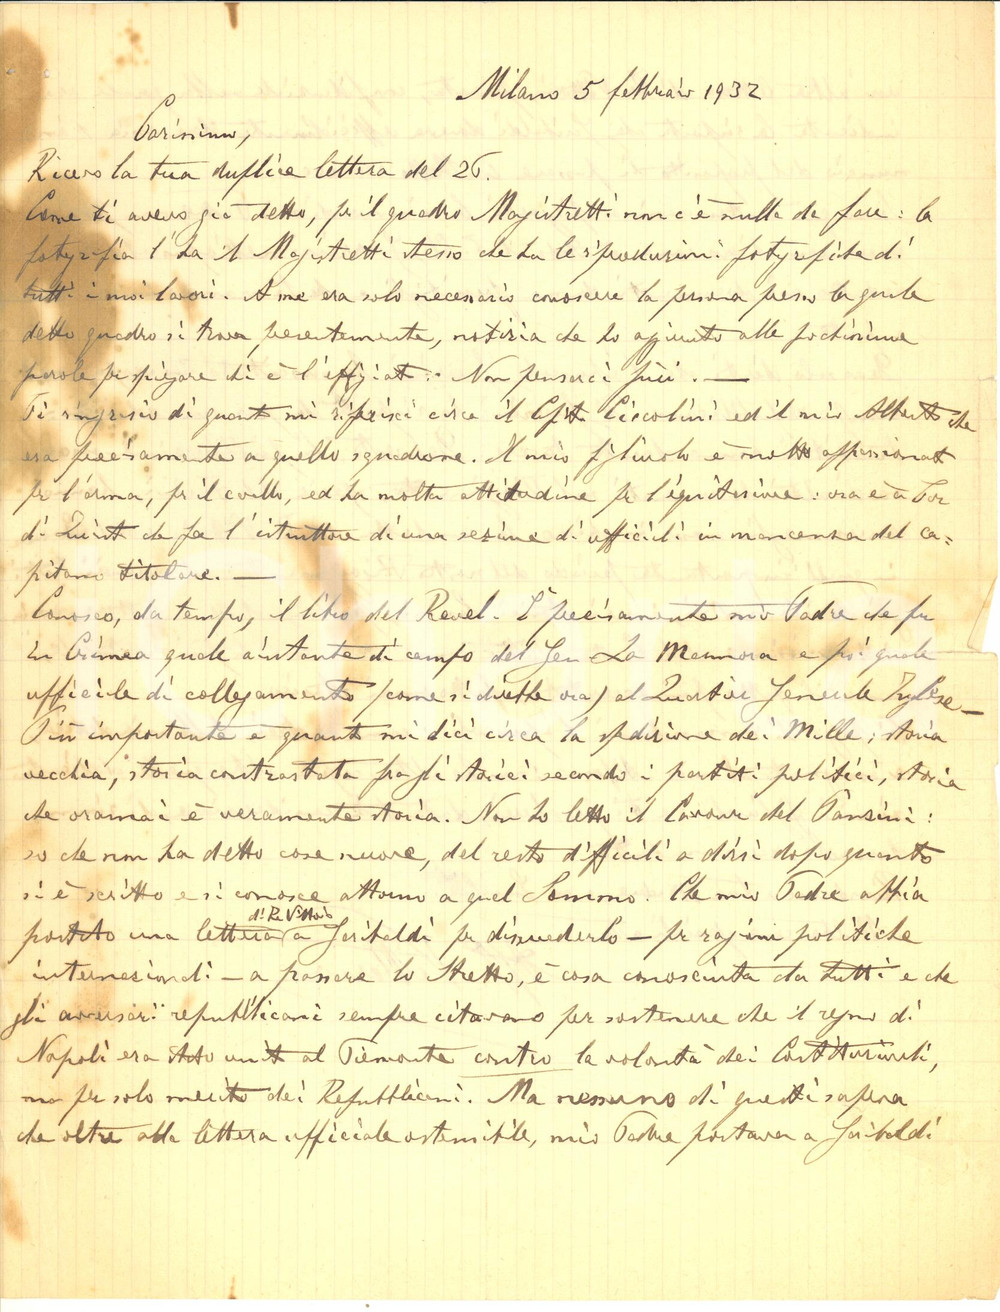 Milano 5 febbraio 1932
Carissimo,
Ricevo la tua duplice lettera del 26.
Come ti avevo già detto, per il quadro Magistretti non c'è nulla da fare: la
fotografia l'ha il Magistretti stesso che ha le riproduzioni fotografiche di
tutti i suoi lavori. A me era solo necessario conoscere la persona presso la quale
detto quadro si trova presentemente, notizia che ho aggiunto alle pochissime
parole per spiegare chi è l'effigiato. Non pensarci più. —
Ti ringrazio di quanto mi riferisci circa il Ciccolini ed il mio Alberto che
era precisamente a quello squadrone. Il mio figliuolo è molto appassionato
per l'arma, per il cavallo, ed ha molta attitudine per l'equitazione: ora è a Tor
di Quinto che fa l'istruttore di una sezione di ufficiali in mancanza del ca=
pitano titolare. —
Conosco, da tempo, il libro del Revel. È precisamente mio Padre che fu
in Crimea quale aiutante di campo del Gen La Marmora e poi quale
ufficiale di collegamento (come si direbbe ora) al Quartier Generale Inglese_
Più importante è quanto mi dici circa la spedizione dei Mille; storia
vecchia, storia contrastata fra gli storici secondo i partiti politici, storia
che oramai è veramente storia. Non ho letto il Cavour del Panzini:
so che non ha detto cose nuove, del resto difficili a dirsi dopo quanto
si è scritto e si conosce attorno a quel Sommo. Che mio Padre abbia
portato una lettera di Re Vittorio a Garibaldi per dissuaderlo — per ragioni politiche
internazionali — a passare lo Stretto, è cosa conosciuta da tutti e che
gli avversari repubblicani sempre citavano per sostenere che il regno di
Napoli era stato unito al Piemonte contro la volontà dei Costituzionali,
ma per solo merito dei Repubblicani. Ma nessuno di questi sapeva
che oltre alla lettera ufficiale ostensibile, mio Padre portava a Garibaldi